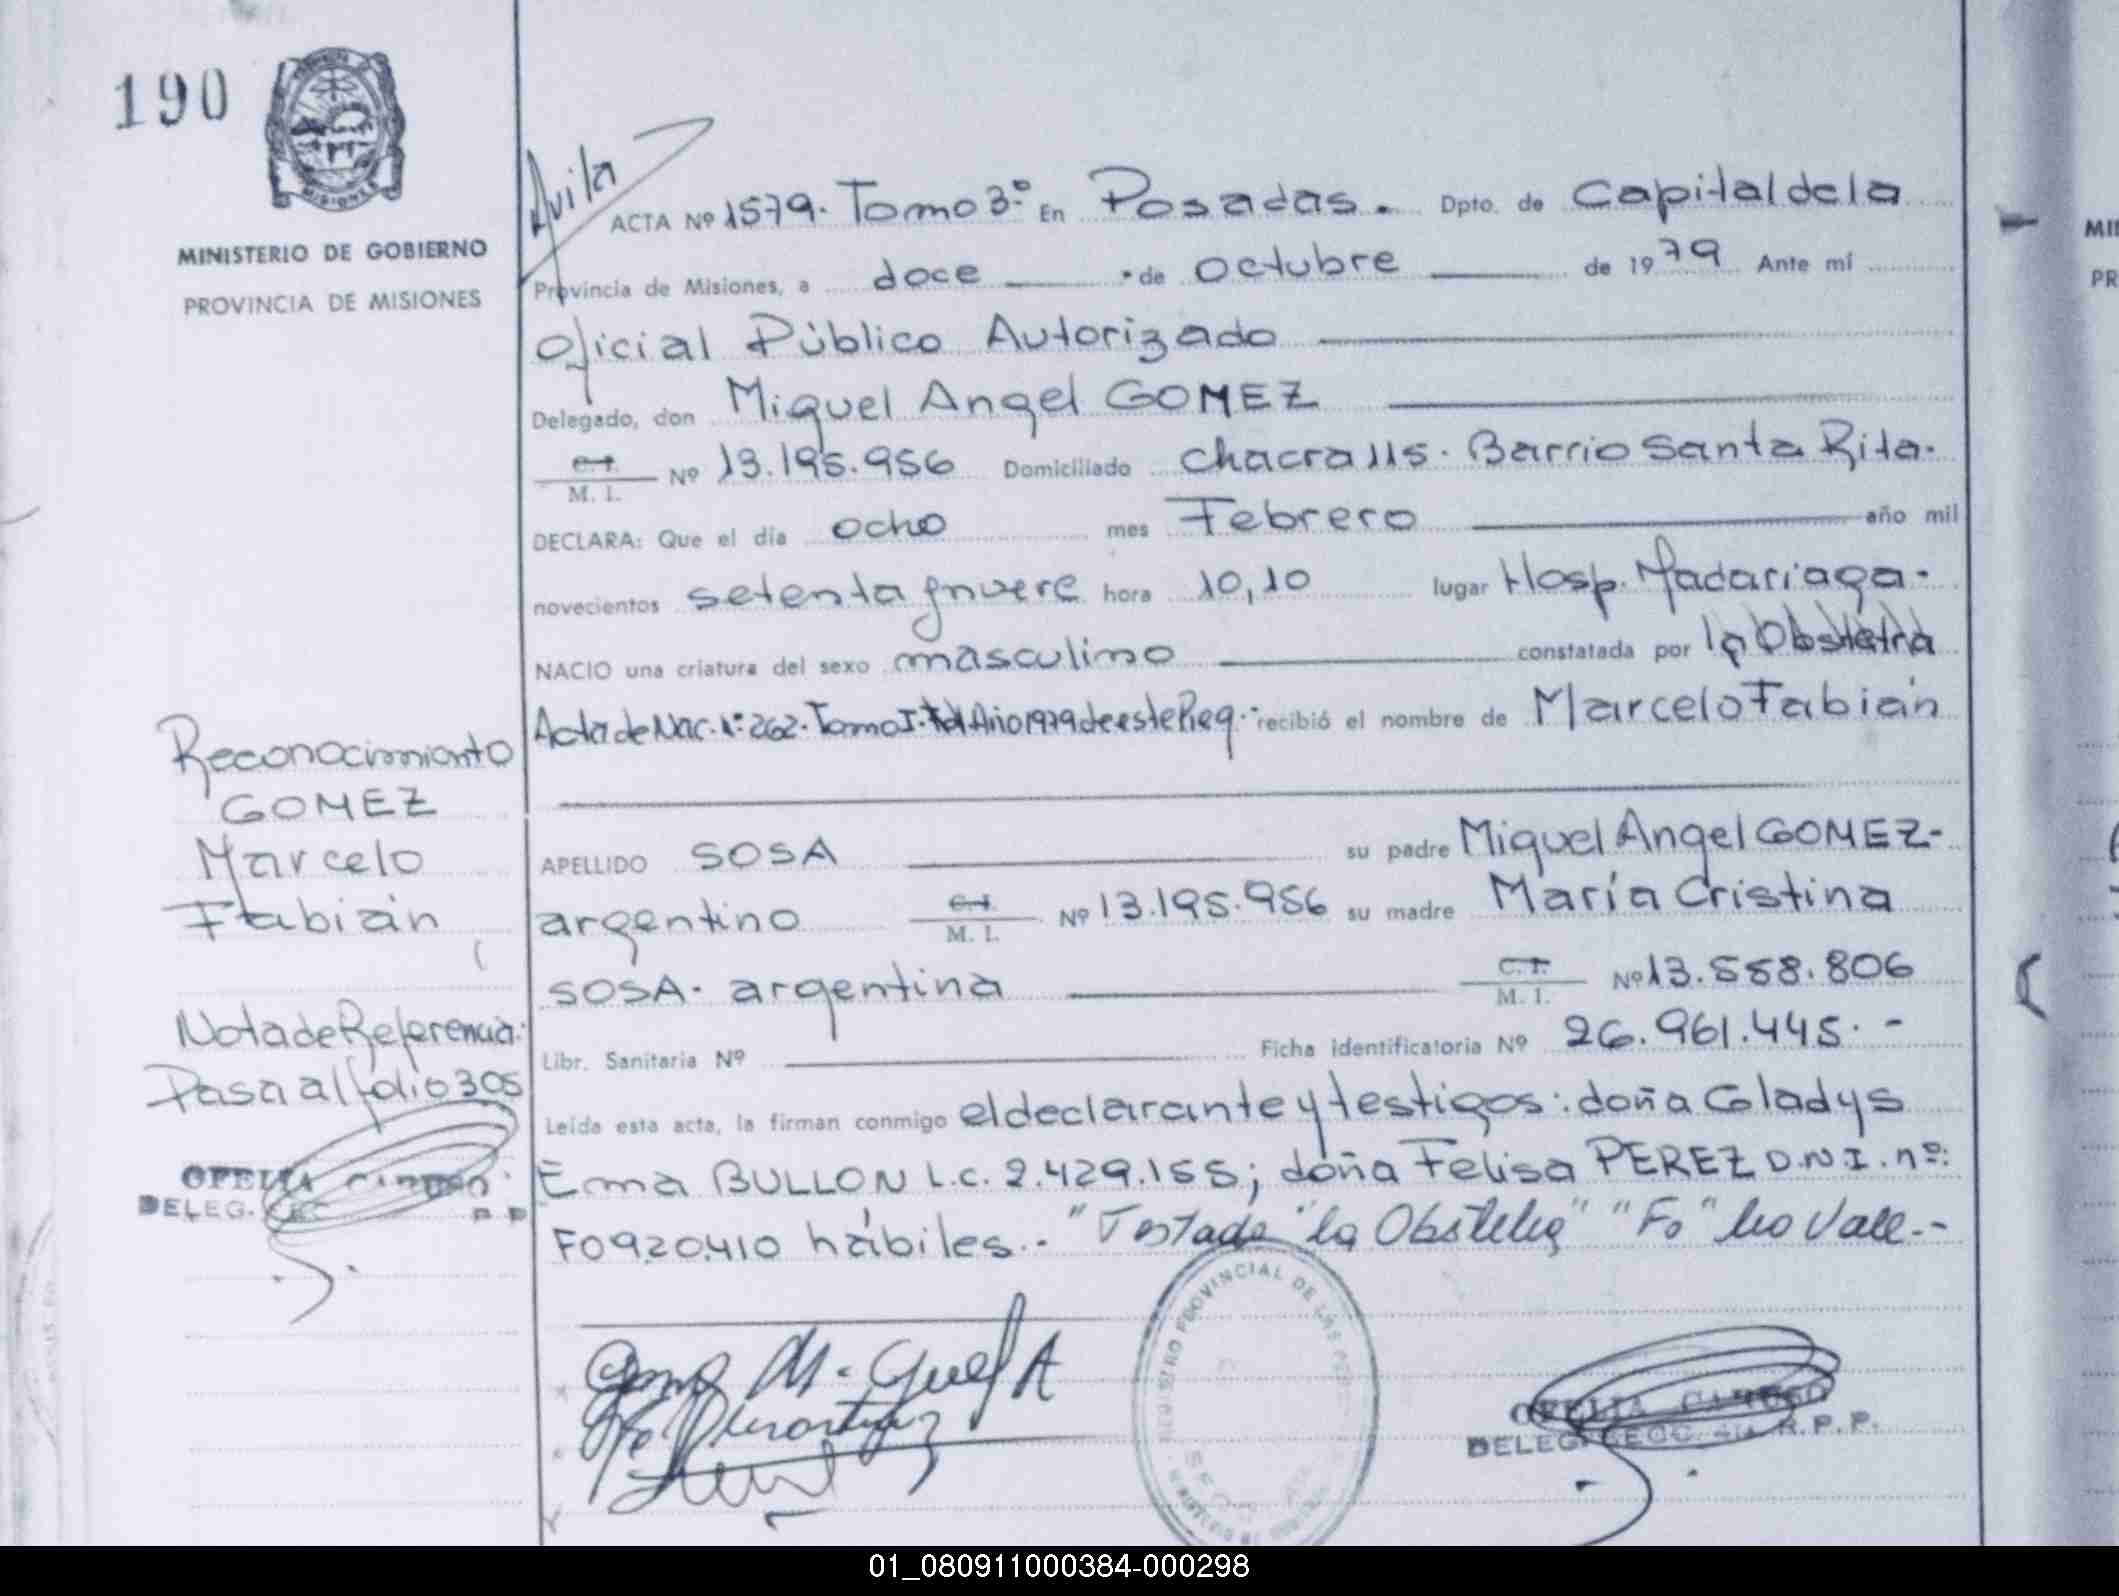 190
MINISTERIO DE GOBIERNO
PROVINCIA DE MISIONES
Avila
ACTA Nº 1579. Tomo 3º En Posadas. Dpto. de Capital de la
Provincia de Misiones, a doce de Octubre de 1979 Ante mí
Oficial Público Autorizado
Delegado, don Miguel Angel GOMEZ
C.I. M. I. Nº 13.195.956 Domiciliado Chacra 115. Barrio Santa Rita.
DECLARA: Que el día ocho mes Febrero año mil
novecientos setenta y nueve hora 10,10 lugar Hosp. Madariaga.
NACIO una criatura del sexo masculino constatada por la Obstetra
Acta de Nac. Nº: 262. Tomo I. del Año 1979 de este Reg. recibió el nombre de Marcelo Fabián
APELLIDO SOSA su padre Miguel Angel GOMEZ-
argentino C.I. M. I. Nº 13.195.956 su madre María Cristina
SOSA. argentina C.I. M. I. Nº 13.558.806
Libr. Sanitaria Nº Ficha identificatoria Nº 26.961.445. -
Leída esta acta, la firman conmigo el declarante y testigos: doña Gladys
Ema BULLON L.C. 2.429.155; doña Felisa PEREZ D.N.I. nº:
F0920410 hábiles.- "Testado "la Obstetra" "Fo" No Vale.-
Reconocimiento
GOMEZ
Marcelo
Fabián
Nota de Referencia:
Pasa al folio 305
OFELIA CARDOSO
DELEG. SECC.
REGISTRO PROVINCIAL DE LAS PERS
MINISTERIO DE GOBIERNO
OFELIA CARDOSO
DELEG. SECC. 4ta R.P.P.
01_080911000384-000298